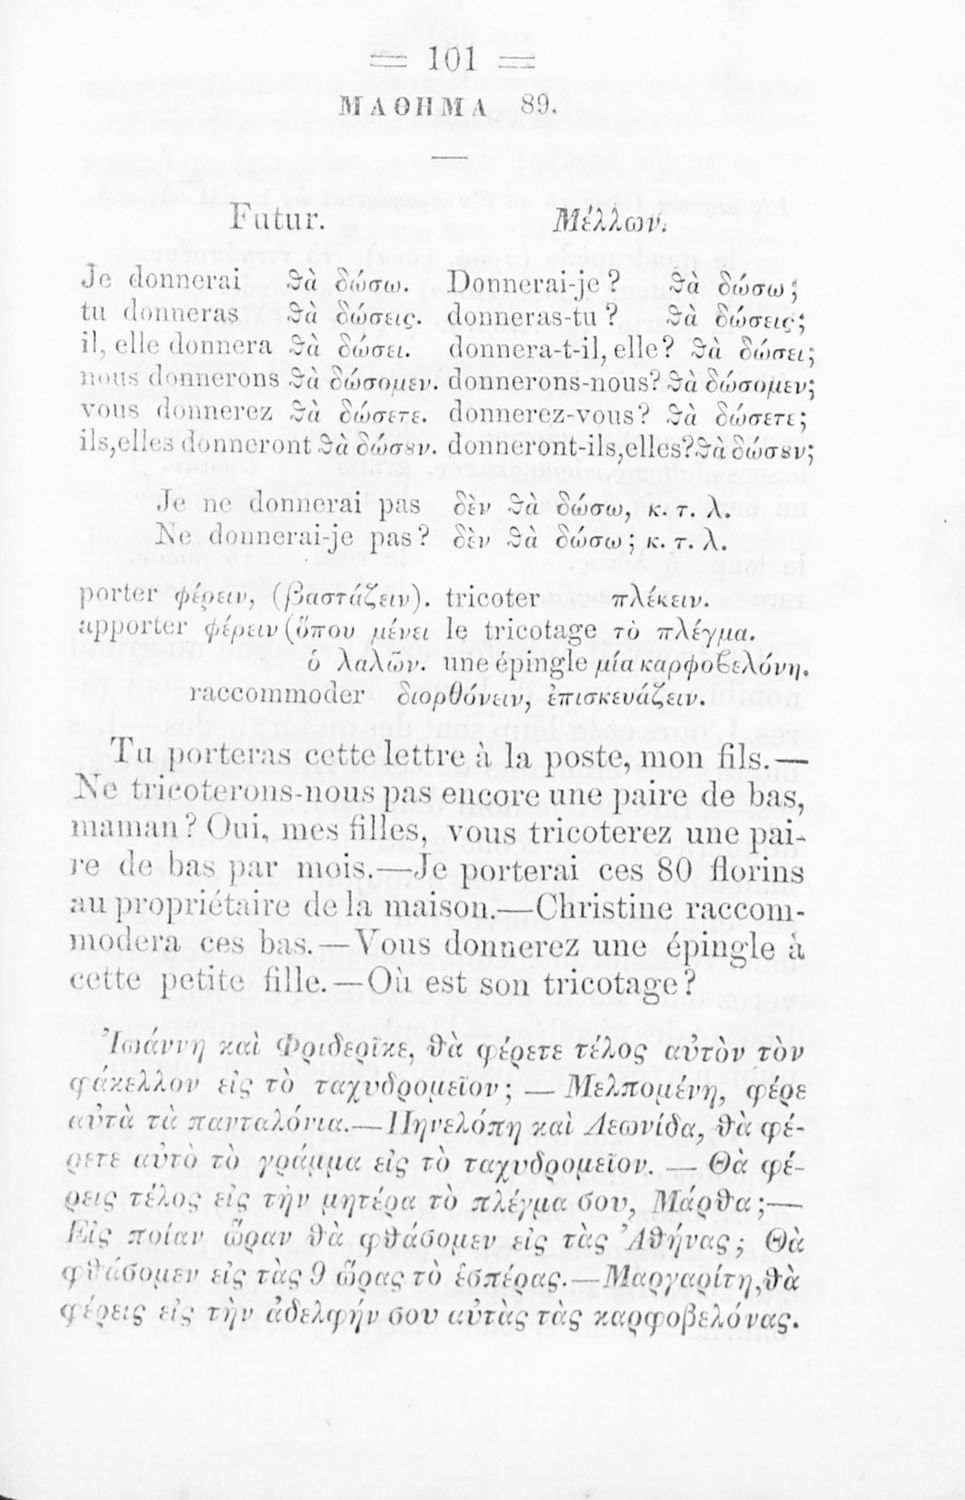 = 101 =
ΜΑΘΗΜΑ 89.
Futur. Μέλλων.
Je donnerai θὰ δώσω. Donnerai-je ? θὰ δώσω;
tu donneras θὰ δώσεις. donneras-tu ? θὰ δώσεις;
il, elle donnera θὰ δώσει. donnera-t-il, elle? θὰ δώσει;
nous donnerons θὰ δώσομεν. donnerons-nous? θὰ δώσομεν;
vous donnerez θὰ δώσετε. donnerez-vous? θὰ δώσετε;
ils,elles donneront θὰ δώσȣν. donneront-ils,elles? θὰ δώσȣν;
Je ne donnerai pas δὲν θὰ δώσω, κ. τ. λ.
Ne donnerai-je pas? δὲν θὰ δώσω; κ. τ. λ.
porter φέρειν, (βαστάζειν). tricoter πλέκειν.
apporter φέρειν (ὅπου μένει le tricotage τὸ πλέγμα.
ὁ λαλῶν. une épingle μία καρφοβελόνη.
raccommoder διορθόνειν, ἐπισκευάζειν.
Tu porteras cette lettre à la poste, mon fils.—
Ne tricoterons-nous pas encore une paire de bas,
maman? Oui, mes filles, vous tricoterez une pai-
re de bas par mois.—Je porterai ces 80 florins
au propriétaire de la maison.—Christine raccom-
modera ces bas.—Vous donnerez une épingle à
cette petite fille.—Où est son tricotage?
Ἰωάννη καὶ Φριδερῖκε, θὰ φέρετε τέλος αὐτὸν τὸν
φάκελλον εἰς τὸ ταχυδρομεῖον; — Μελπομένη, φέρε
αὐτὰ τὰ πανταλόνια.—Πηνελόπη καὶ Λεωνίδα, θὰ φέ-
ρετε αὐτὸ τὸ γράμμα εἰς τὸ ταχυδρομεῖον. — Θὰ φέ-
ρεις τέλος εἰς τὴν μητέρα τὸ πλέγμα σου, Μάρθα;—
Εἰς ποίαν ὥραν θὰ φθάσομεν εἰς τὰς Ἀθήνας; Θὰ
φθάσομεν εἰς τὰς 9 ὥρας τὸ ἑσπέρας.—Μαργαρίτη,θὰ
φέρεις εἰς τὴν ἀδελφήν σου αὐτὰς τὰς καρφοβελόνας.